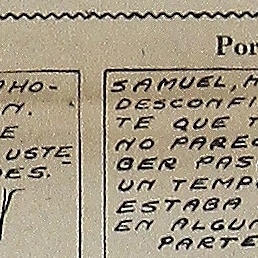 Por
AHO-
N.
E
USTE
DES.
SAMUEL,
DESCONFI
TE QUE T
NO PAREC
BER PAS
UN TEMP
ESTABA
EN ALGUN
PARTE